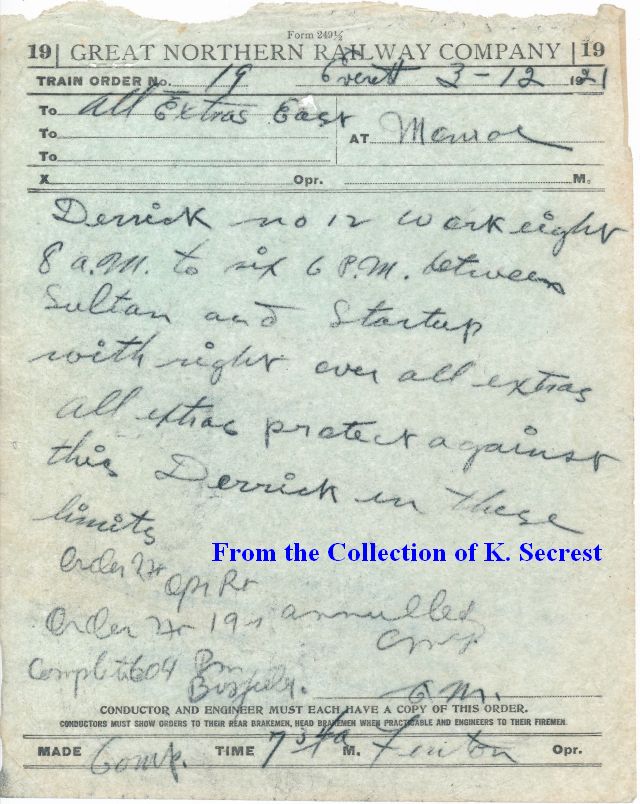 Form 249½
19 GREAT NORTHERN RAILWAY COMPANY 19
TRAIN ORDER No. 19 Everett 3-12 1921
To All Extras East
To AT Monroe
To
X Opr. M.
Derrick no 12 work eight
8 a.m. to six 6 P.M. between
Sultan and Startup
with right over all extras
all extras protect against
this Derrick in these
limits
From the Collection of K. Secrest
Order
Opr
Order 19 annulled
Complete 604 Pm
G.M.
CONDUCTOR AND ENGINEER MUST EACH HAVE A COPY OF THIS ORDER.
CONDUCTORS MUST SHOW ORDERS TO THEIR REAR BRAKEMEN, HEAD BRAKEMEN WHEN PRACTICABLE AND ENGINEERS TO THEIR FIREMEN.
MADE Comp. TIME 734a M. Fenton Opr.